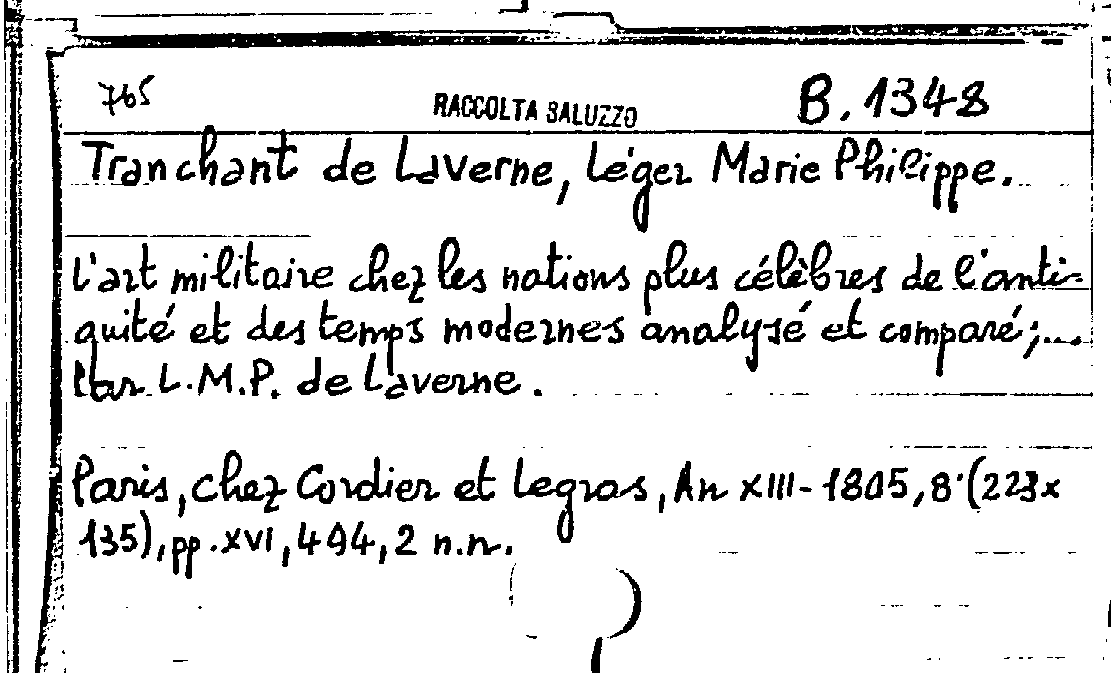 765
RACCOLTA SALUZZO
B. 1348
Tranchant de Laverne, Léger Marie Philippe.
L'art militaire chez les nations plus célèbres de l'anti-
quité et des temps modernes analysé et comparé;...
Par L.M.P. de Laverne.
Paris, chez Cordier et Legras, An XIII-1805, 8° (223x
135), pp. XVI, 494, 2 n.n.